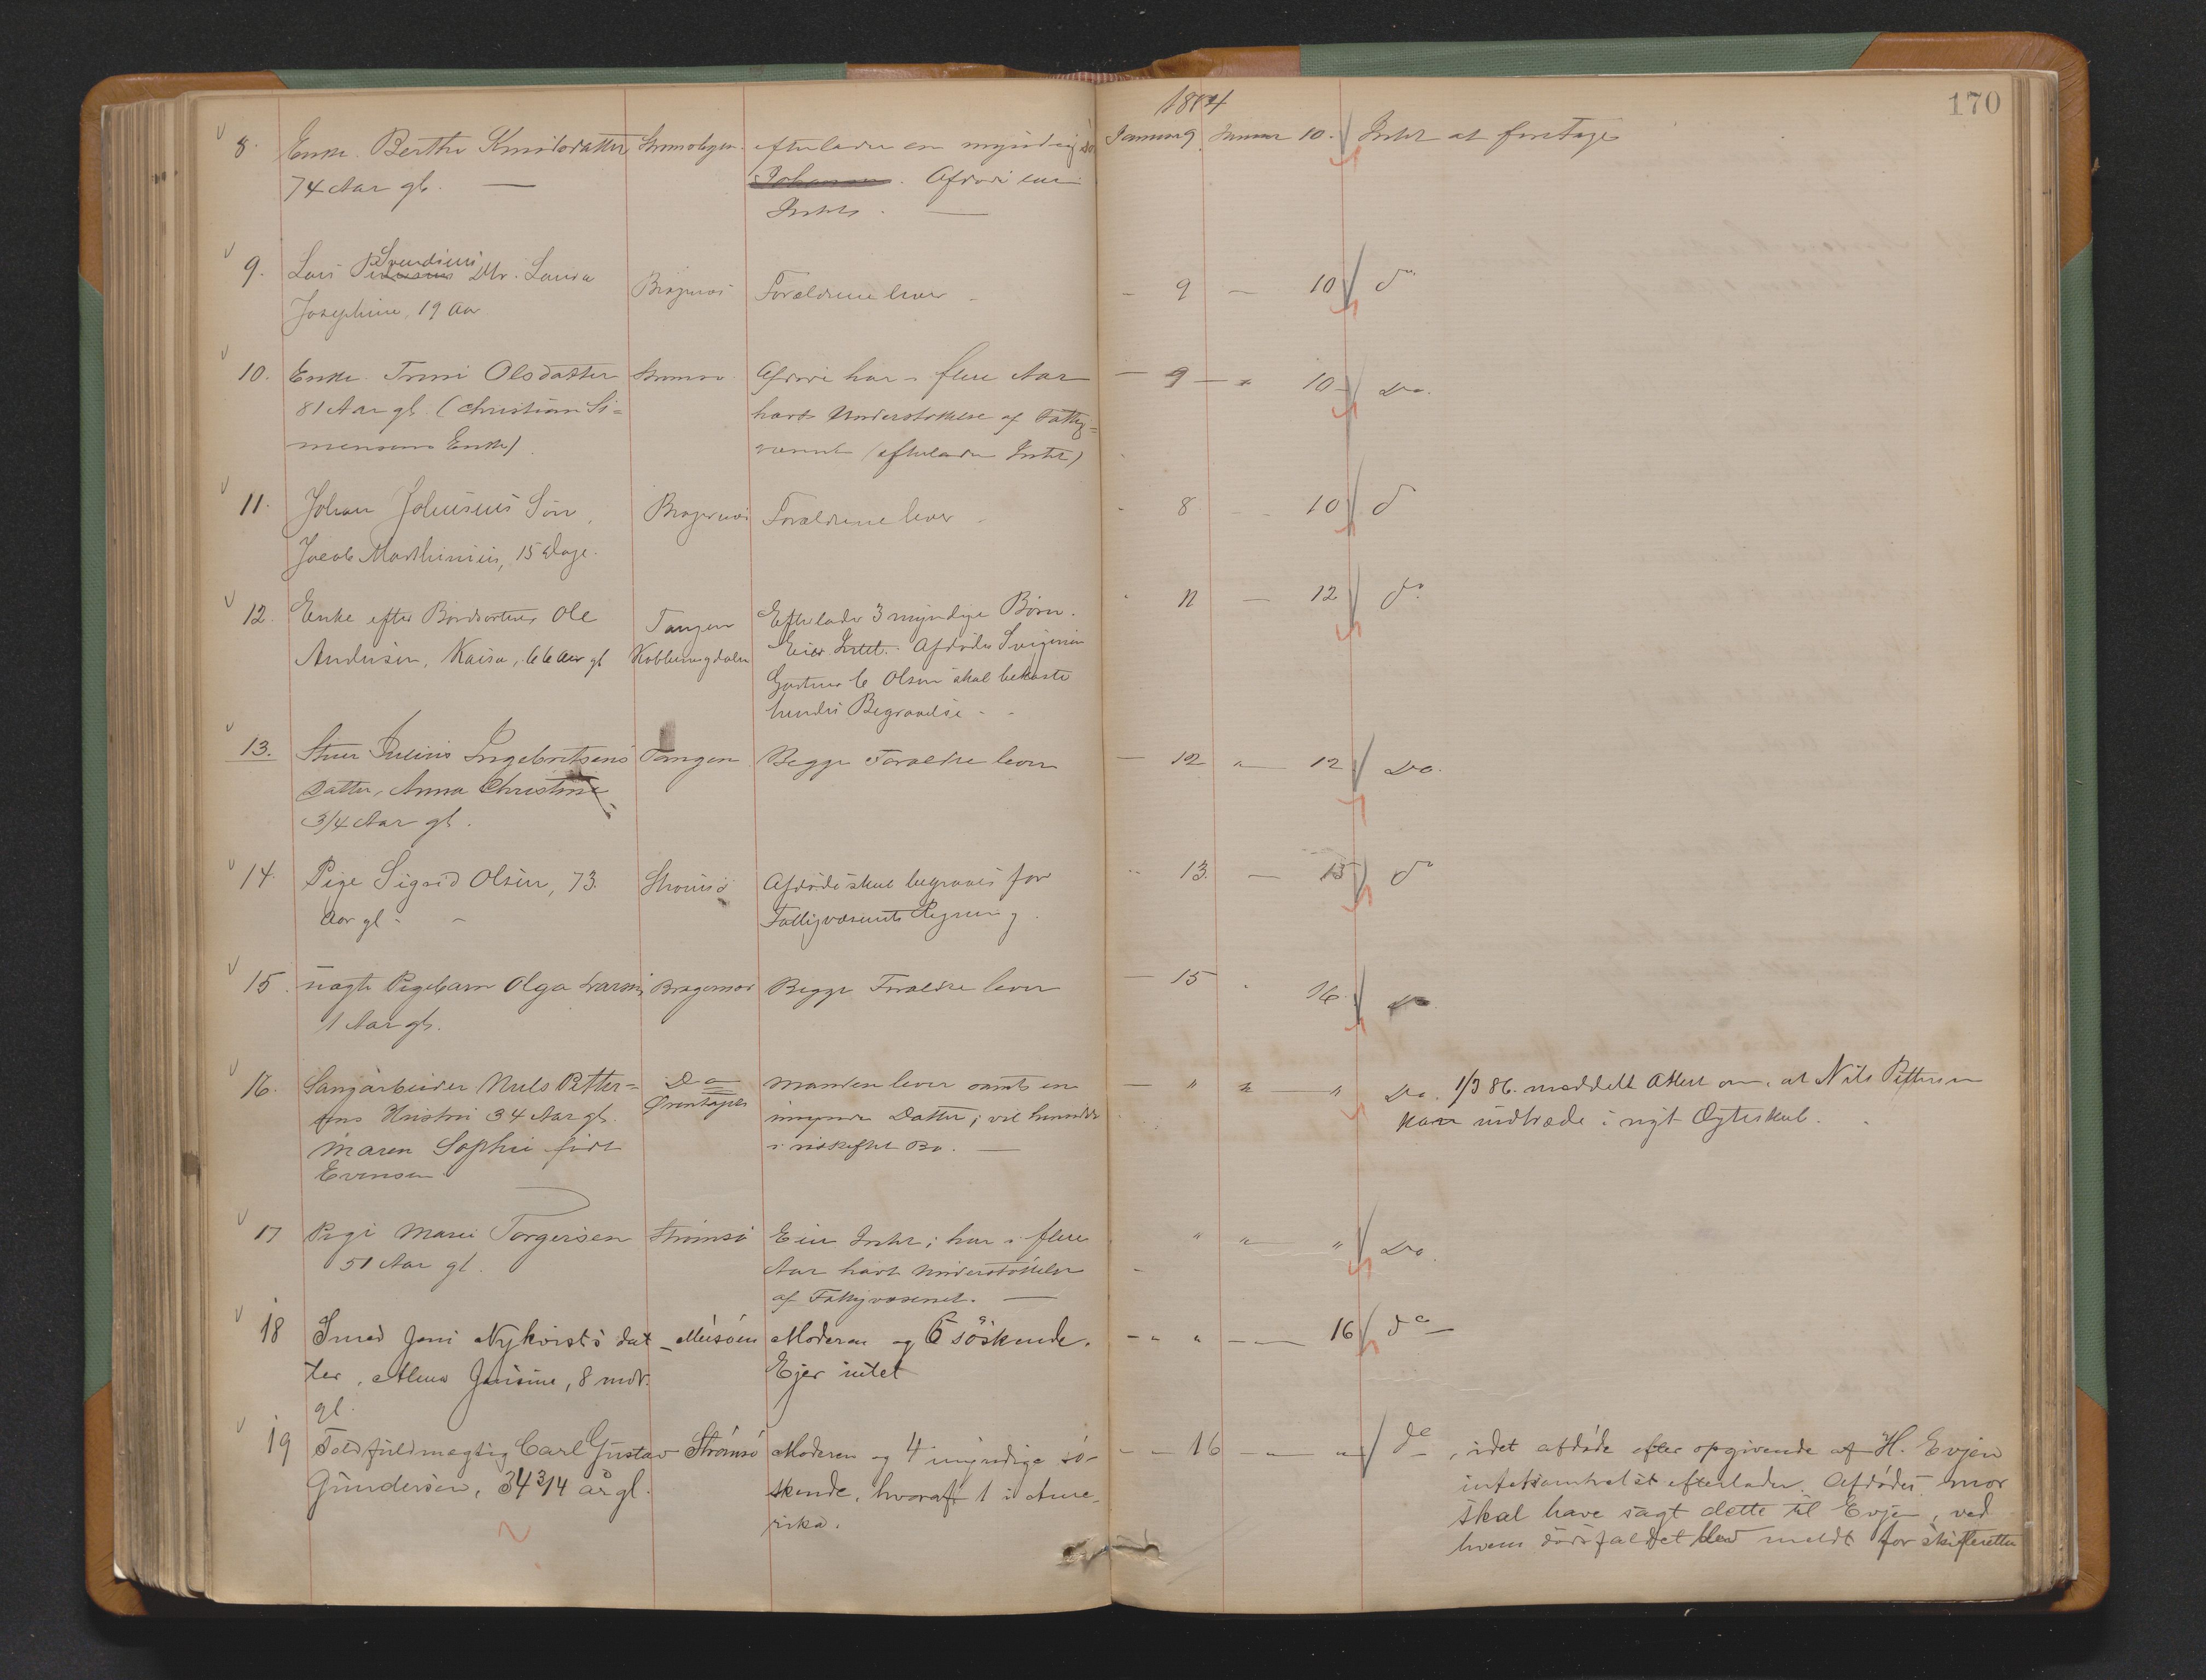 170
1884
8. Enke Berthe Knudsdatter
74 Aar gl. —
efterlader en myndig
Johansen. Afdøde eier
Intet. —
Januar 9 Januar 10. Intet at foretage
9. Lars Svendsens Dtr. Laura
Josephine, 19 Aar
Bragernæs
Forældrene lever -
- 9 - 10 do
10. Enke Olsdatter
81 Aar gl. (Christian Si=
mensens Enke)
Strømsø
Afdøde har i flere Aar
havt Understøttelse af Fattig=
væsenet (efterlader Intet)
- 9 - " 10 - Do.
11. Johan Johnsens Søn,
Jacob Marthinius, 15 Dage.
Bragernæs
Forældrene lever -
8 - 10 do
12. Enke efter Bordsorterer Ole
Andersen, Kaisa, 66 Aar gl
Tangen
Kobberrugdalen
Efterlader 3 myndige Børn.
Eier Intet. Afdødes Svigersøn
C Olsen skal bekoste
hendes Begravelse -
- 12 do
13. Julius Ingebretsens
Datter, Anna Christine
3/4 Aar gl.
Tangen
Begge Forældre lever
- 12 " - 12 Do.
14. Pige Sigrid Olsen, 73
Aar gl. -
Strømsø
Afdøde skal begraves for
Fattigvæsenets Regning.
" 13. - 15 do
15. uægte Pigebarn Olga Larsen,
1 Aar gl.
Bragernæs
Begge Forældre lever
- 15 16. Do.
16. Sangarbeider Nils Petter=
sens Hustru 34 Aar gl.
Maren Sophie født
Evensen
Do
Manden lever samt en
umyndig Datter; vil hensidde
i uskiftet Bo. —
- " " - " Do. 1/3 86. meddelt Attest om, at Nils Pettersen
kan indtræde i nyt Ægteskab.
17 Pige Marie Torgersen
51 Aar gl.
Strømsø
Eier Intet; har i flere
Aar havt Understøttelse
af Fattigvæsenet. —
" " - " Do.
18 Smed Jens Nykvists dat-
ter, Alma Jensine, 8 mdr.
gl.
Moderen og 6 søskende.
Ejer intet
- " " - - 16 do -
19 Toldfuldmægtig Carl Gustav
Gundersen, 34 3/4 år gl.
Strømsø
Moderen og 4 myndige sø-
skende, hvoraf 1 i Ame-
rika.
- - 16 - " - " do, idet afdøde efter opgivende af H. Evjen
intetsomhelst efterlader. Afdødes mor
skal have sagt dette til Evjen, ved
hvem dødsfaldet blev meldt for skifteretten